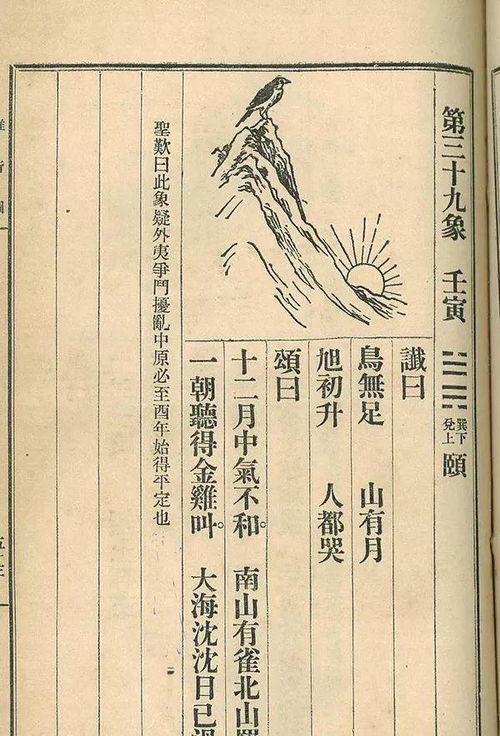 第三十九象 壬寅 ䷚ 巽下兌上 頤
讖曰
鳥無足 山有月
旭初升 人都哭
頌曰
十二月中氣不和。 南山有雀北山羅
一朝聽得金雞叫。 大海沈沈日已過
聖歎曰此象疑外夷爭鬥擾亂中原必至酉年始得平定也